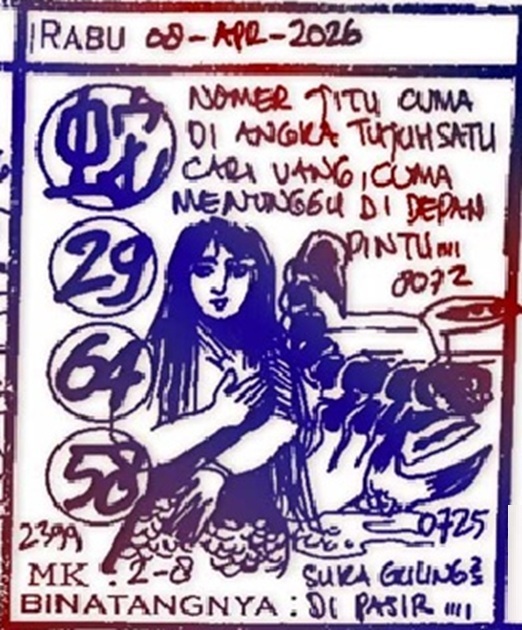 RABU 08-APR-2026
蛇
NOMER JITU CUMA
DI ANGKA TUJUH SATU
CARI UANG, CUMA
MENUNGGU DI DEPAN
PINTU....
8072
29
64
58
2399
0725
MK : 2-8
SUKA GULING²
BINATANGNYA : DI PASIR ....